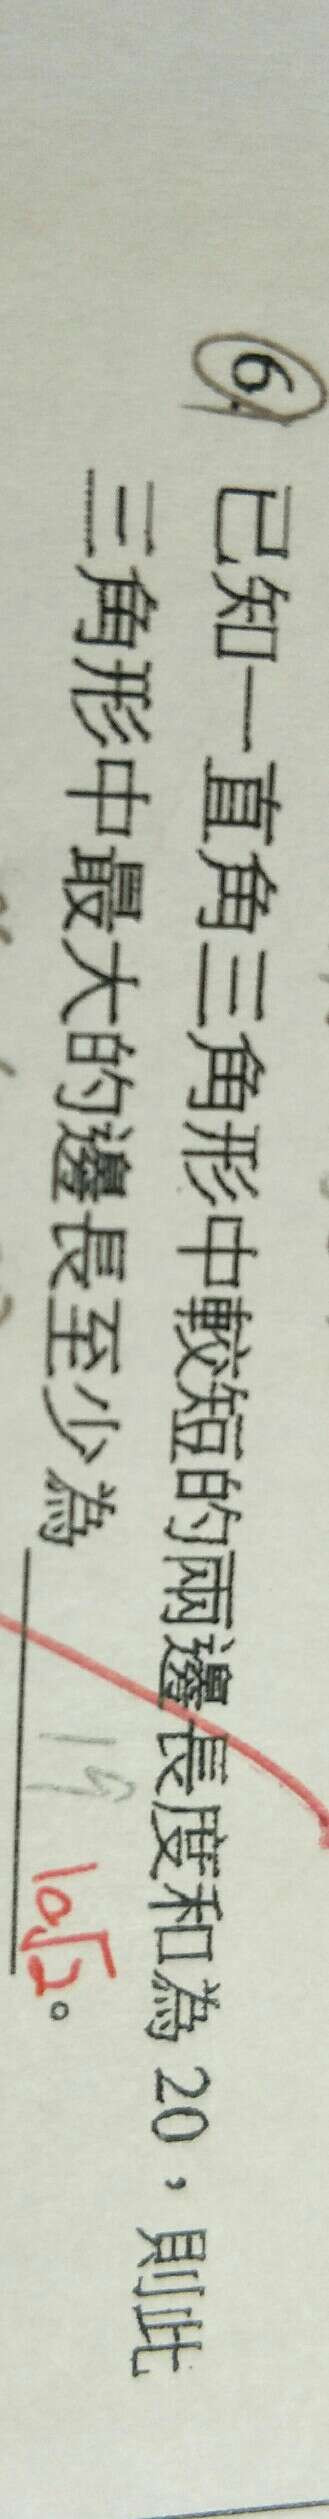 6. 已知一直角三角形中較短的兩邊長度和為 20，則此
三角形中最大的邊長至少為 19 10√2。